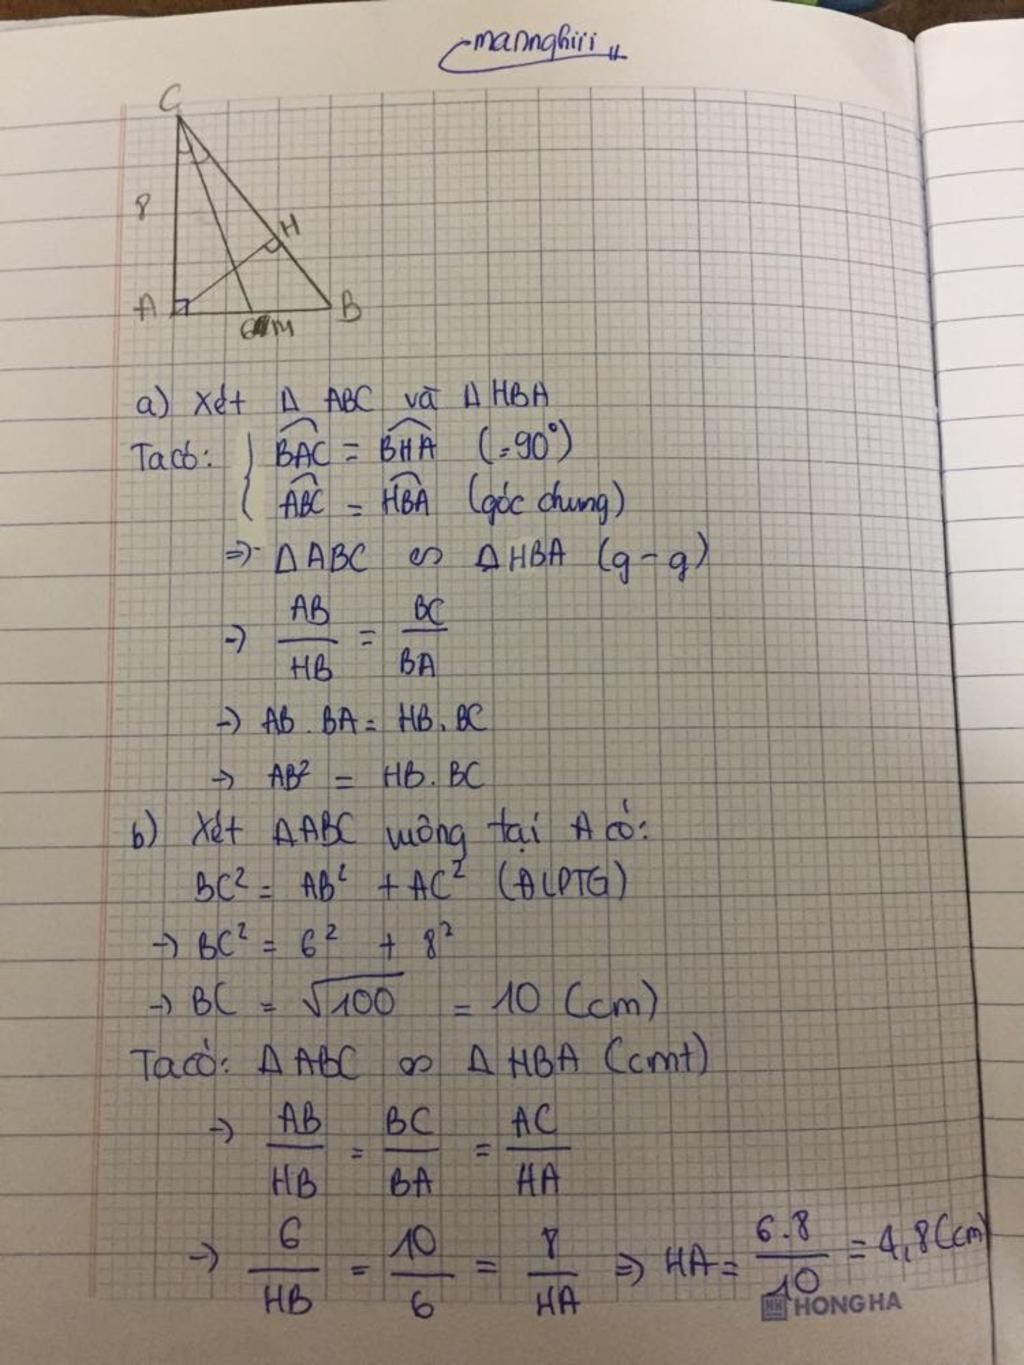 mannghiii
C
8
H
A
B
6 M
a) Xét Δ ABC và Δ HBA
Ta có: { BAC = BHA (=90°)
ABC = HBA (góc chung)
=> Δ ABC ∽ Δ HBA (g-g)
-> AB/HB = BC/BA
-> AB . BA = HB . BC
-> AB² = HB . BC
b) Xét Δ ABC vuông tại A có:
BC² = AB² + AC² (ĐLPTG)
-> BC² = 6² + 8²
-> BC = √100 = 10 (cm)
Ta có: Δ ABC ∽ Δ HBA (cmt)
-> AB/HB = BC/BA = AC/HA
-> 6/HB = 10/6 = 8/HA => HA = 6.8/10 = 4,8 (cm)
HONG HA